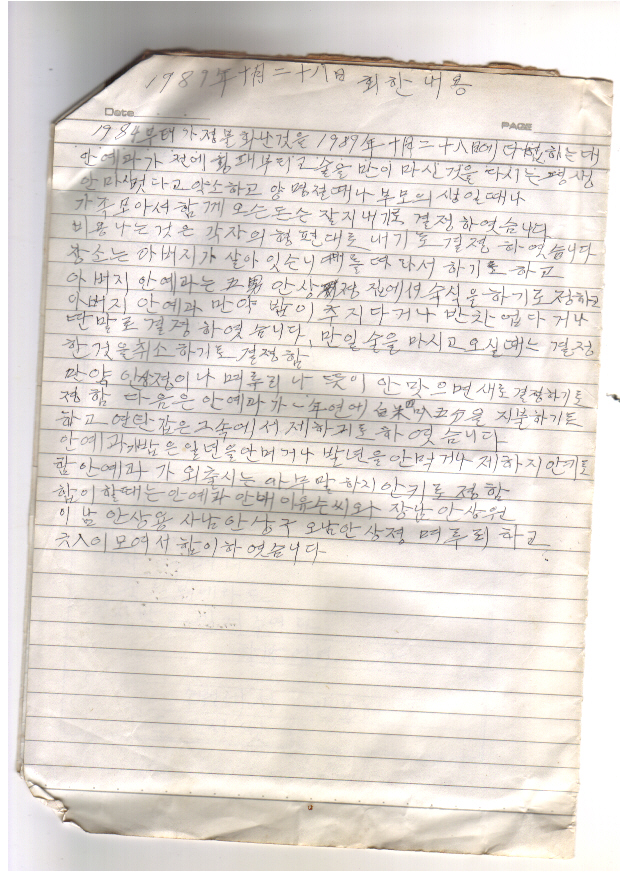 1989年 十月 二十八日 회한 내용
Date
PAGE
1984부터 가정불화난것을 1989年 十月 二十八日에 하는데
안예과가 전에 행패부리고 술을 많이 마신것을 다시는 평생
안마신다고 약소하고 양명절때나 부모의 생일때나
가족모아서 함께 모든돈은 잘지내기로 결정하였습니다
비용나는것은 각자의 형편대로 내기로 결정 하였습니다
장소는 아버지가 살아있는니 따라서 하기로 하고
아버지 안예과는 五男 안상정 집에서 숙식을 하기로 정하고
아버지 안예과 만약 밥이 추지다거나 반찬 업다거나
딴말로 결정 하였습니다, 만일 술을 마시고 오실때는 결정
한것을 취소하기로 결정함
만약 안상정이나 며루리나 뜻이 안맞으면 새로결정하기로
정함 다음은 안예과가 一年연에 白米 四叺 五斗을 지불하기로
하고 연탄값은 그속에서 제하기로 하였습니다
안예과 밥은 일년을 안머거나 반년을 안먹거나 제하지안키로
함 안예과가 외출시는 아무말 하지안키로 정함
합이할때는 안예과 안배 이유수씨와 장남 안상원
이남 안상용 사남 안상구 오남안상정 며루리 하고
六人이 모여서 합이하였습니다